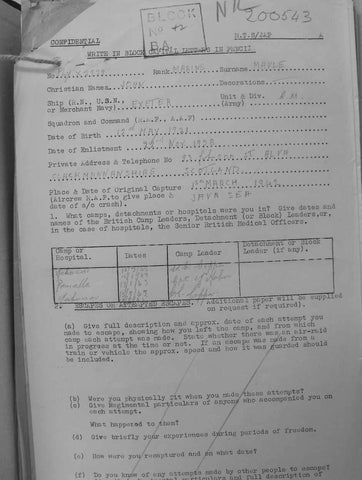 BLOCK
No 42
BA
200543
CONFIDENTIAL
WRITE IN BLOCK CAPITAL LETTERS IN PENCIL
No. Rank MARINE Surname
Christian Names JOHN Decorations
Ship (R.N., U.S.N., or Merchant Navy) EXETER Unit & Div. R.M. (Army)
Squadron and Command (R.A.F., A.A.F)
Date of Birth MAY
Date of Enlistment
Private Address & Telephone No
SCOTLAND
Place & Date of Original Capture MARCH 1942
(Aircrew R.A.F. to give place & date of a/c crash). JAVA SEA
1. What camps, detachments or hospitals were you in? Give dates
and names of the British Camp Leaders, Detachment (or Block) Leaders, or,
in the case of hospitals, the Senior British Medical Officers.
Camp or Hospital. Dates Camp Leader Detachment or Block Leader (if any).
2. ESCAPES OR ATTEMPTED ESCAPES. (Additional paper will be supplied
on request if required).
(a) Give full description and approx. date of each attempt you
made to escape, showing how you left the camp, and from which
camp each attempt was made. State whether there was an air-raid
in progress at the time or not. If an escape was made from a
train or vehicle the approx. speed and how it was guarded should
be included.
(b) Were you physically fit when you made these attempts?
(c) Give Regimental particulars of anyone who accompanied you on
each attempt.
What happened to them?
(d) Give briefly your experiences during periods of freedom.
(e) How were you recaptured and on what date?
(f) Do you know of any attempts made by other people to escape?
mental particulars and full description of